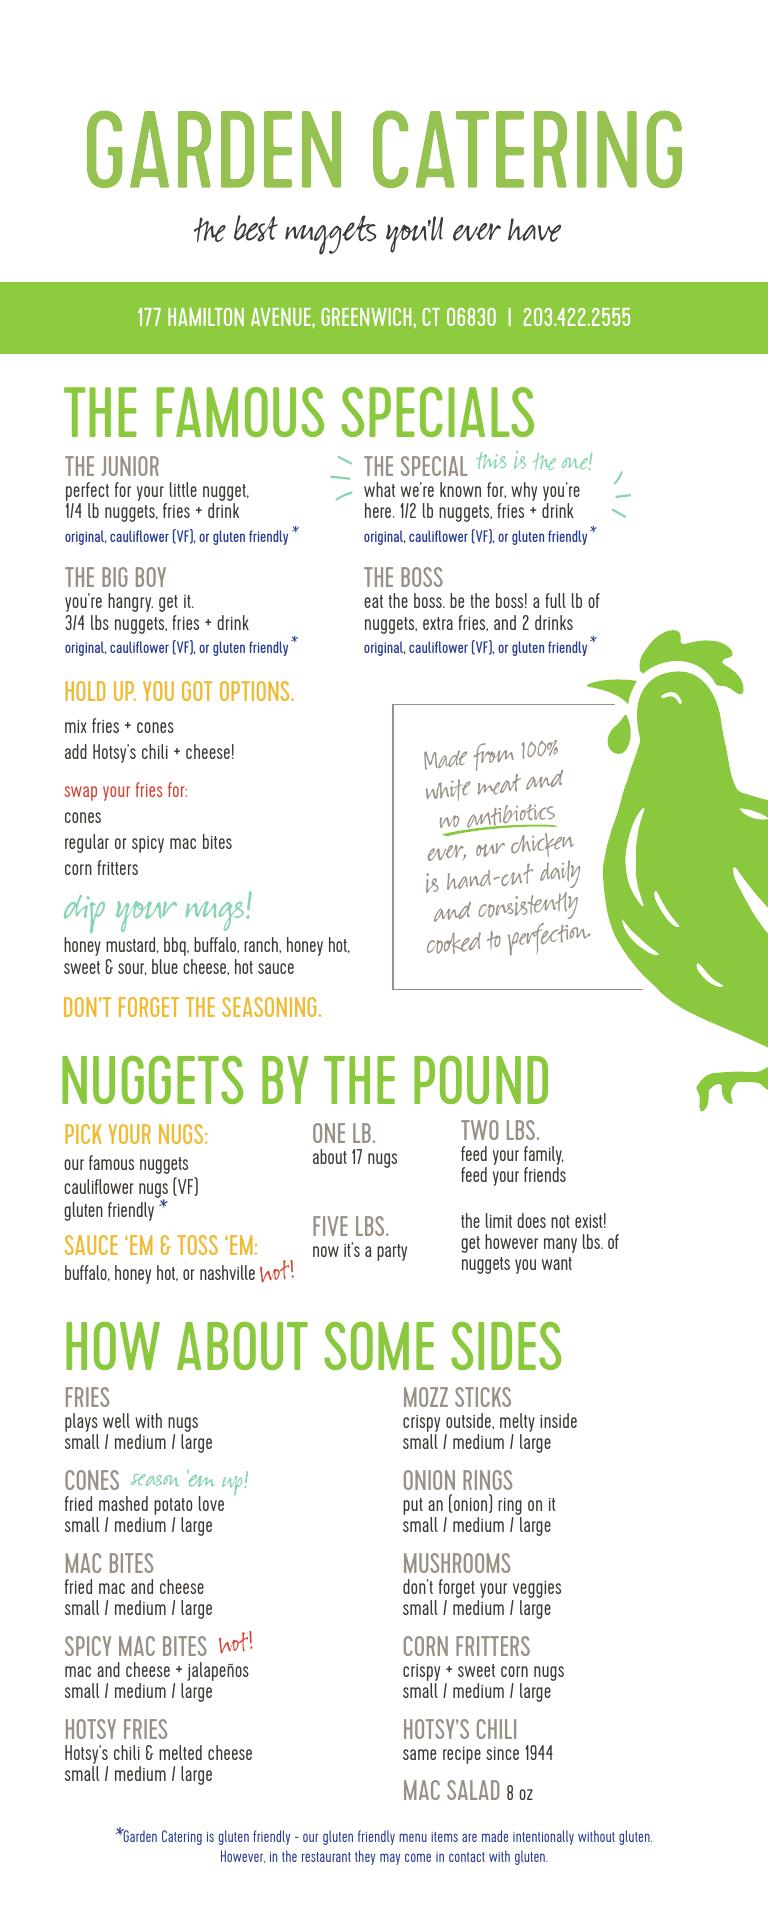 GARDEN CATERING
the best nuggets you'll ever have
177 HAMILTON AVENUE, GREENWICH, CT 06830 | 203.422.2555
THE FAMOUS SPECIALS
THE JUNIOR
perfect for your little nugget,
1/4 lb nuggets, fries + drink
original, cauliflower (VF), or gluten friendly *
THE SPECIAL this is the one!
what we're known for, why you're
here. 1/2 lb nuggets, fries + drink
original, cauliflower (VF), or gluten friendly *
THE BIG BOY
you're hangry. get it.
3/4 lbs nuggets, fries + drink
original, cauliflower (VF), or gluten friendly *
THE BOSS
eat the boss. be the boss! a full lb of
nuggets, extra fries, and 2 drinks
original, cauliflower (VF), or gluten friendly *
HOLD UP. YOU GOT OPTIONS.
mix fries + cones
add Hotsy's chili + cheese!
swap your fries for:
cones
regular or spicy mac bites
corn fritters
dip your nugs!
honey mustard, bbq, buffalo, ranch, honey hot,
sweet & sour, blue cheese, hot sauce
DON'T FORGET THE SEASONING.
Made from 100%
white meat and
no antibiotics
ever, our chicken
is hand-cut daily
and consistently
cooked to perfection.
NUGGETS BY THE POUND
PICK YOUR NUGS:
our famous nuggets
cauliflower nugs (VF)
gluten friendly *
SAUCE 'EM & TOSS 'EM:
buffalo, honey hot, or nashville hot!
ONE LB.
about 17 nugs
TWO LBS.
feed your family,
feed your friends
FIVE LBS.
now it's a party
the limit does not exist!
get however many lbs. of
nuggets you want
HOW ABOUT SOME SIDES
FRIES
plays well with nugs
small / medium / large
CONES season 'em up!
fried mashed potato love
small / medium / large
MAC BITES
fried mac and cheese
small / medium / large
SPICY MAC BITES hot!
mac and cheese + jalapeños
small / medium / large
HOTSY FRIES
Hotsy's chili & melted cheese
small / medium / large
MOZZ STICKS
crispy outside, melty inside
small / medium / large
ONION RINGS
put an (onion) ring on it
small / medium / large
MUSHROOMS
don't forget your veggies
small / medium / large
CORN FRITTERS
crispy + sweet corn nugs
small / medium / large
HOTSY'S CHILI
same recipe since 1944
MAC SALAD 8 oz
*Garden Catering is gluten friendly - our gluten friendly menu items are made intentionally without gluten.
However, in the restaurant they may come in contact with gluten.